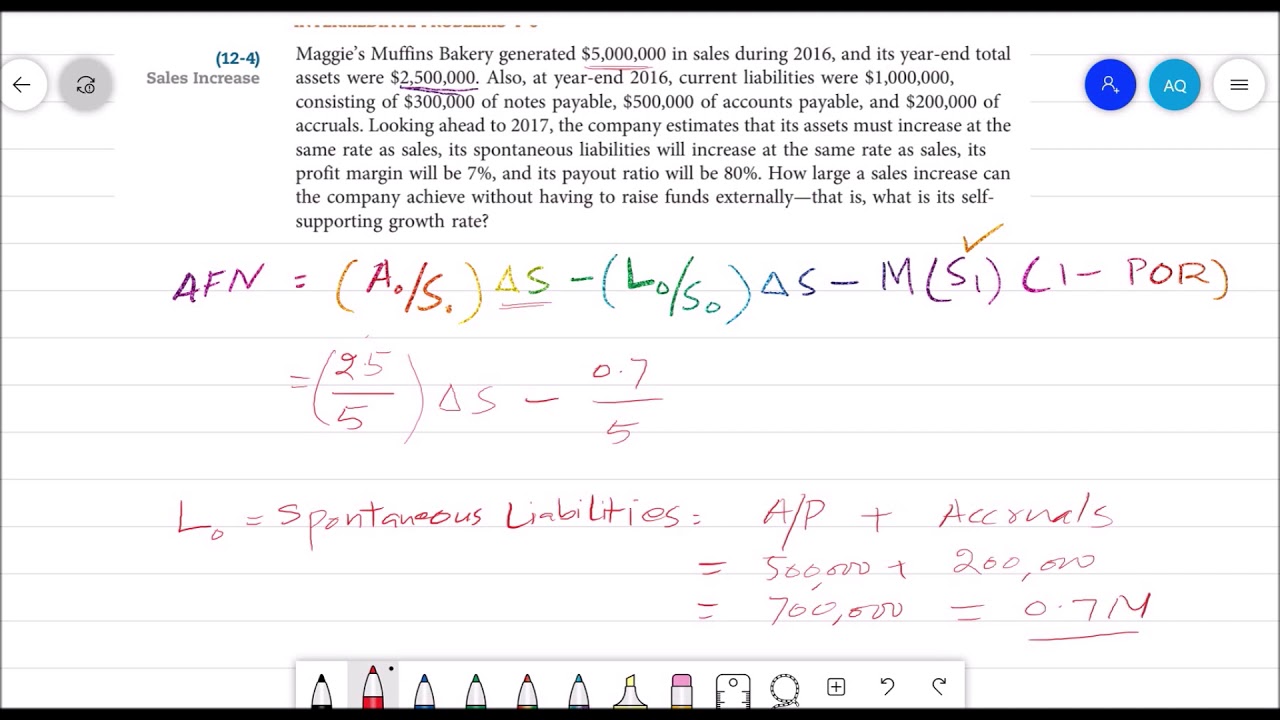 (12-4)
Sales Increase
Maggie's Muffins Bakery generated $5,000,000 in sales during 2016, and its year-end total
assets were $2,500,000. Also, at year-end 2016, current liabilities were $1,000,000,
consisting of $300,000 of notes payable, $500,000 of accounts payable, and $200,000 of
accruals. Looking ahead to 2017, the company estimates that its assets must increase at the
same rate as sales, its spontaneous liabilities will increase at the same rate as sales, its
profit margin will be 7%, and its payout ratio will be 80%. How large a sales increase can
the company achieve without having to raise funds externally—that is, what is its self-
supporting growth rate?
AQ
AFN = (A₀/S₀) ΔS - (L₀/S₀) ΔS - M(S₁) (1 - POR)
= (2.5/5) ΔS - 0.7/5
L₀ = Spontaneous Liabilities = A/P + Accruals
= 500,000 + 200,000
= 700,000 = 0.7M